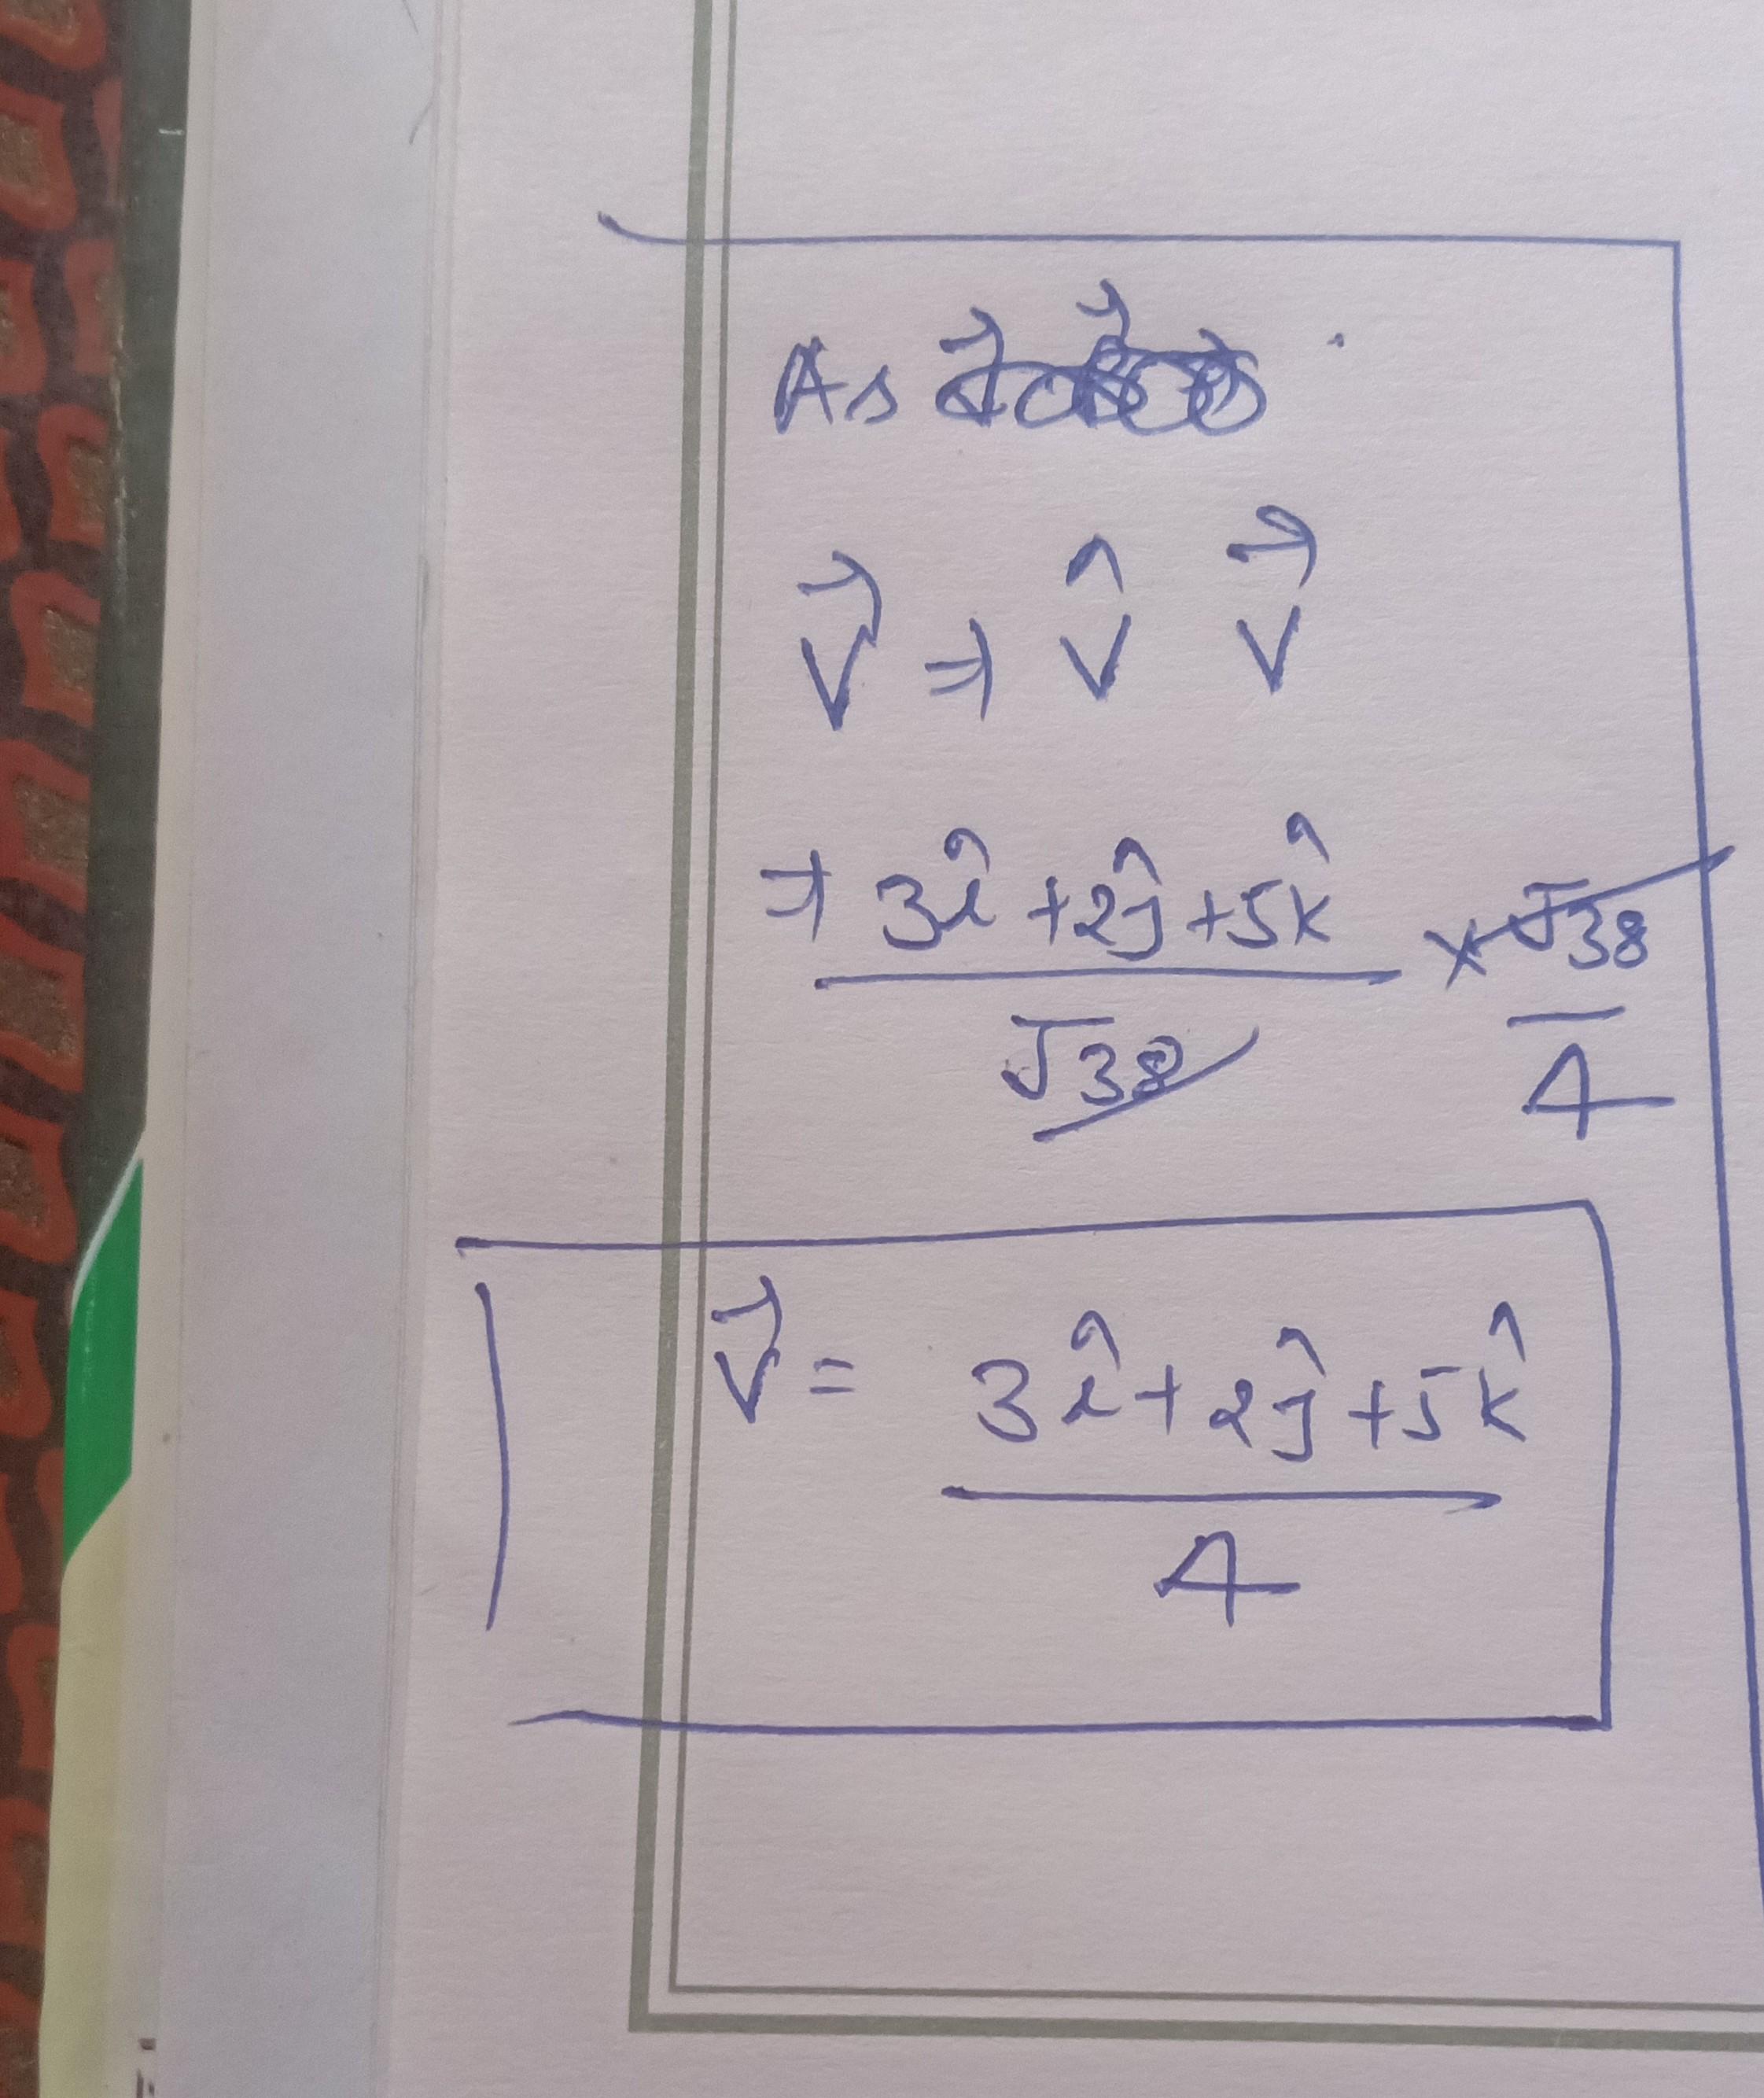 As
V⃗ ⇒ V̂ V⃗
⇒ 3î + 2ĵ + 5k̂ / √38 × √38 / 4
V⃗ = 3î + 2ĵ + 5k̂ / 4